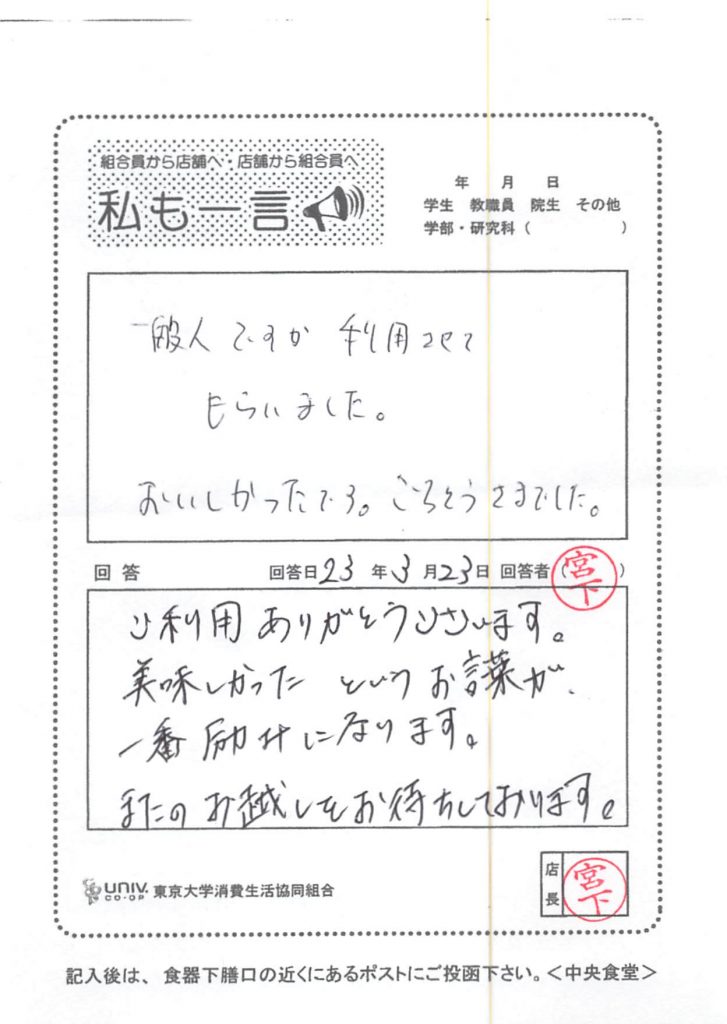 組合員から店舗へ・店舗から組合員へ
私も一言
年 月 日
学生 教職員 院生 その他
学部・研究科（ ）
一般人ですが 利用させて
もらいました。
おいしかったです。ごちそうさまでした。
回答 回答日23年3月23日 回答者（宮下）
ご利用ありがとうございます。
美味しかった というお言葉が、
一番励みになります。
またのお越しをお待ちしております。
UNIV. CO-OP 東京大学消費生活協同組合
店長 宮下
記入後は、食器下膳口の近くにあるポストにご投函下さい。＜中央食堂＞